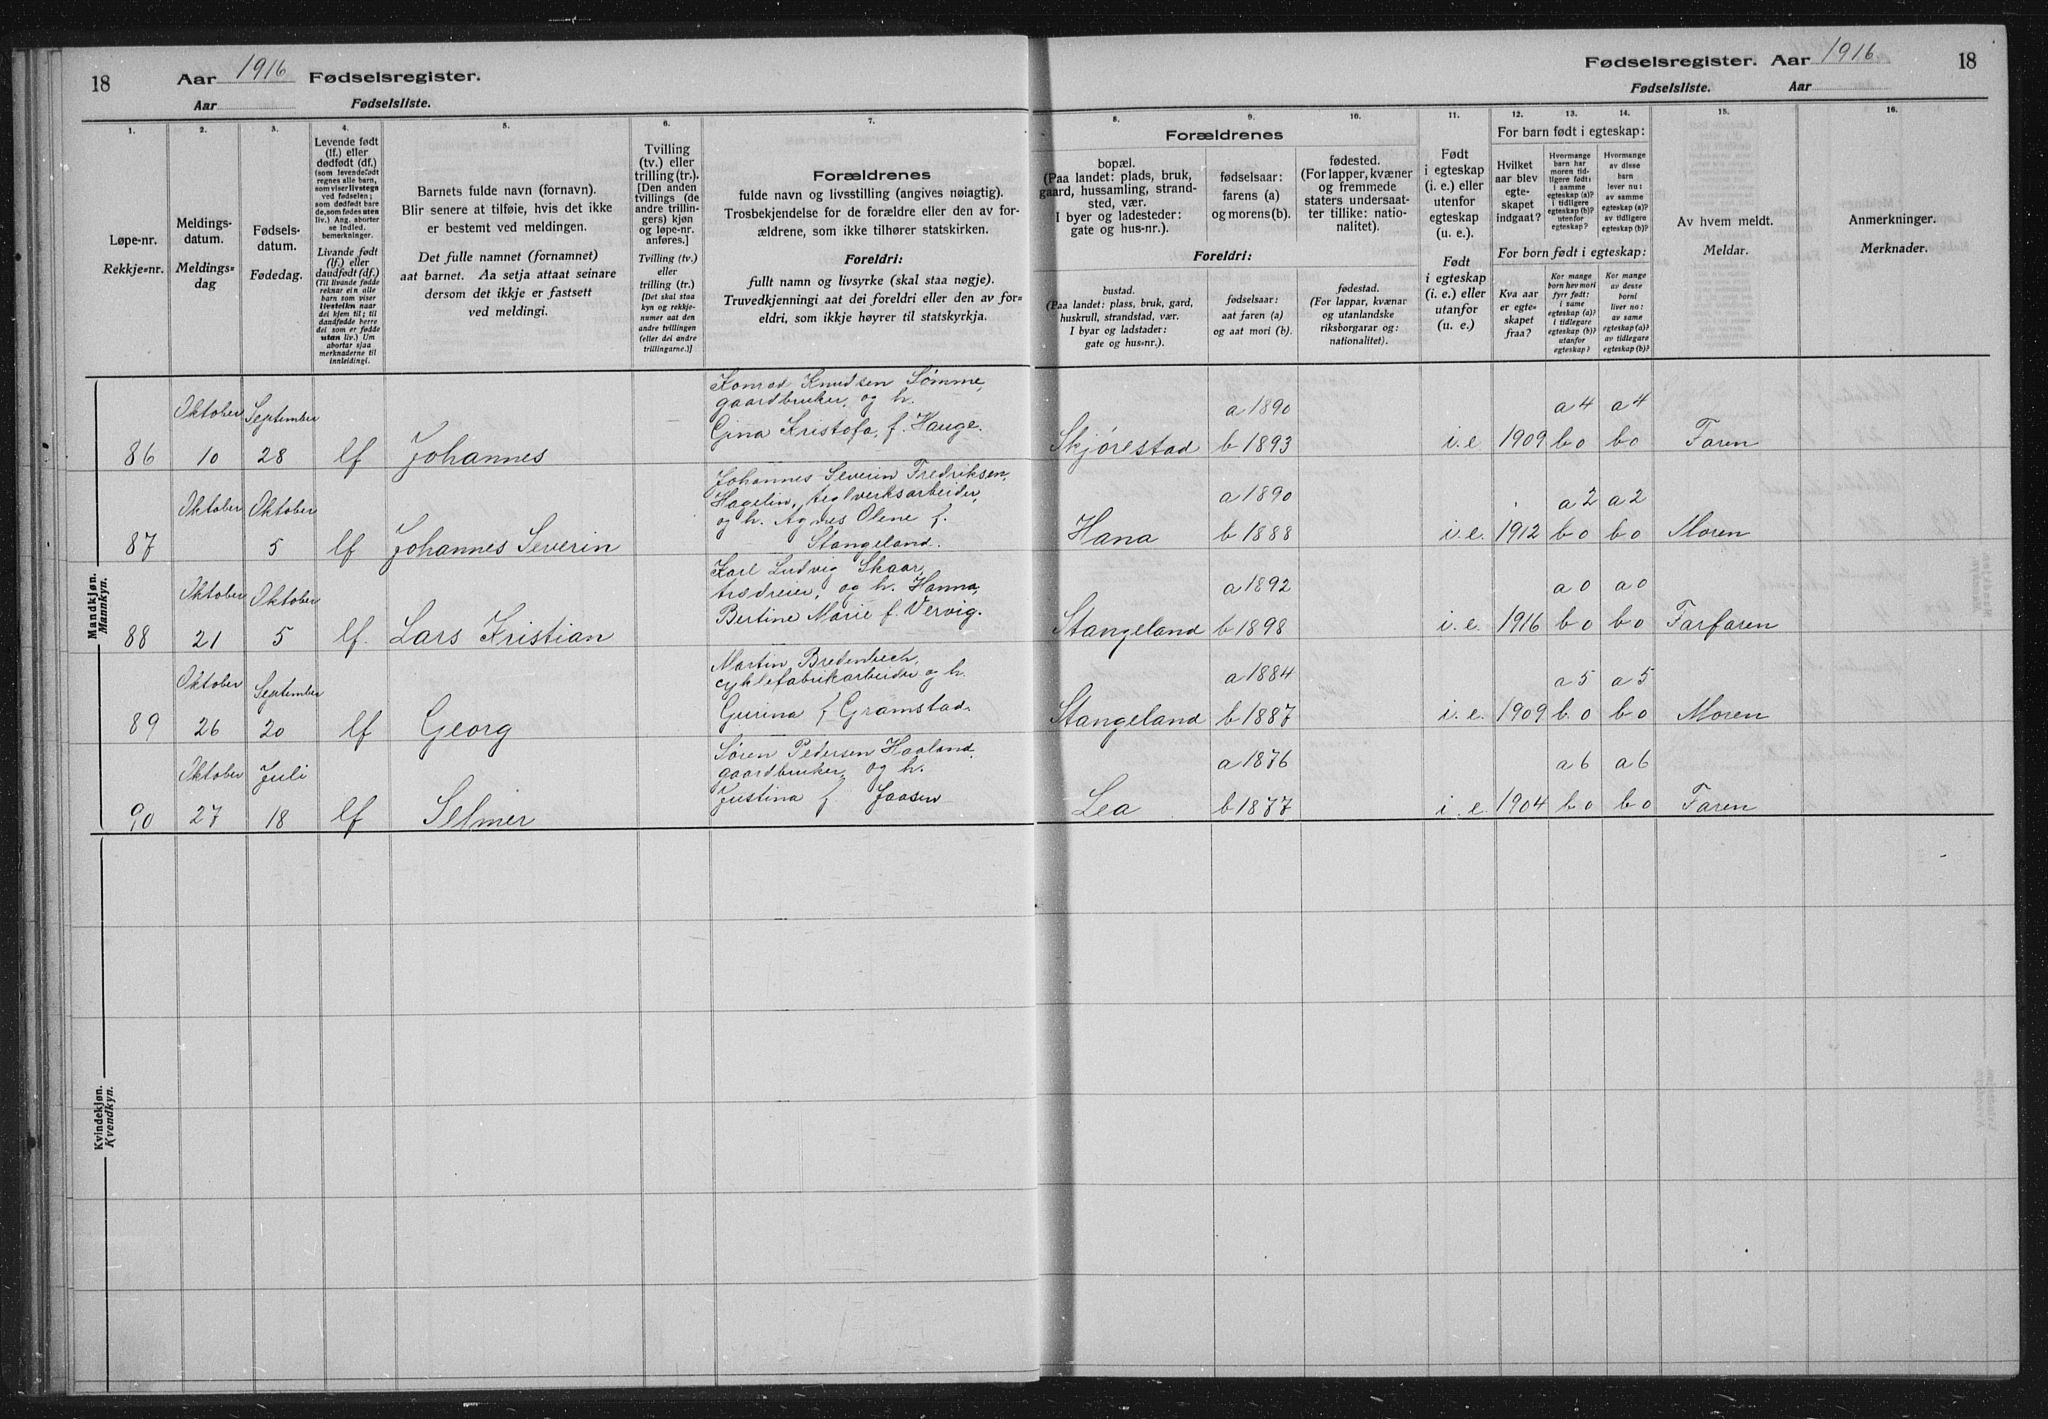 18
Aar 1916 Fødselsregister.
Aar Fødselsliste.
Fødselsregister. Aar 1916
18
Fødselsliste. Aar
1.
Løpe-nr.
Rekkje-nr.
2.
Meldings-
datum.
Meldings-
dag
3.
Fødsels-
datum.
Fødedag.
4.
Levende født
(lf.) eller
dødfødt (df.)
(som levendefødt
regnes alle barn,
som viser livstegn
ved fødselen;
som dødfødt bare
de, som fødes uten
liv.) Ang. aborter
se Indled.
bemerkninger.
Livande født
(lf.) eller
daudfødt (df.)
(Til livande fødde
reknar ein alle
barn som viser
livsteikn naar
dei kjem til; til
daudfødde berre
dei som er fødde
utan liv.) Um
abortar sjaa
merknaderne til
innleidingi.
5.
Barnets fulde navn (fornavn).
Blir senere at tilføie, hvis det ikke
er bestemt ved meldingen.
Det fulle namnet (fornamnet)
aat barnet. Aa setja attaat seinare
dersom det ikkje er fastsett
ved meldingi.
6.
Tvilling
(tv.) eller
trilling (tr.).
[Den anden
tvillings (de
andre trillin-
gers) kjøn
og løpe-nr.
anføres.]
Tvilling (tv.)
eller
trilling (tr.)
[Det skal staa
kyn og rekkje-
numer aat den
andre tvillingen
(eller dei andre
trillingarne.)]
7.
Forældrenes
fulde navn og livsstilling (angives nøiagtig).
Trosbekjendelse for de forældre eller den av for-
ældrene, som ikke tilhører statskirken.
Foreldri:
fullt namn og livsyrke (skal staa nøgje).
Truvedkjenningi aat dei foreldri eller den av for-
eldri, som ikkje høyrer til statskyrkja.
Forældrenes
8.
bopæl.
(Paa landet: plads, bruk,
gaard, hussamling, strand-
sted, vær.
I byer og ladesteder:
gate og hus-nr.).
9.
fødselsaar:
farens (a)
og morens (b).
10.
fødested.
(For lapper, kvæner
og fremmede
staters undersaat-
ter tillike: natio-
nalitet).
Foreldri:
bustad.
(Paa landet: plass, bruk, gard,
huskrull, strandstad, vær.
I byar og ladstader:
gate og hus-nr.).
fødselsaar:
aat faren (a)
og aat mori (b).
fødestad.
(For lappar, kvænar
og utanlandske
riksborgarar og:
nationalitet).
11.
Født
i egteskap
(i. e.) eller
utenfor
egteskap
(u. e.).
Født
i egteskap
(i. e.) eller
utanfor
(u. e.)
12.
13.
14.
For barn født i egteskap:
Hvilket
aar blev
egte-
skapet
indgaat?
Hvormange
barn har
moren tid-
ligere født:
i samme
egteskap (a)?
i tidligere
egteskap (b)?
utenfor
egteskap?
Hvormange
av disse
barn
lever nu:
av samme
egteskap (a)?
av tidligere
egteskap (b)?
For born født i egteskap:
Kva aar
er egte-
skapet
fraa?
Kor mange
born hev mori
fyrr født:
i same
egteskap (a)?
i tidlegare
egteskap (b)?
utanfor
egteskap?
Kor mange
av desse
borni
liver no:
av same
egteskap (a)?
av tidlegare
egteskap (b)?
15.
Av hvem meldt.
Meldar.
16.
Anmerkninger.
Merknader.
Mandkjøn.
Mannkyn.
86
Oktober
10
September
28
lf
Johannes
Konrad Knudsen Sømme,
gaardbruker, og h.
Gina Kristofa, f. Hauge.
Skjørestad
a 1890
b 1893
i. e.
1909
a 4
b 0
a 4
b 0
Faren
87
Oktober
Oktober
5
lf
Johannes Severin
Johannes Severin Fredriksen,
Hagelin, teglverksarbeider,
og h. Agnes Olene f.
Stangeland.
Hana
a 1890
b 1888
i. e.
1912
a 2
b 0
a 2
b 0
Moren
88
Oktober
21
Oktober
5
lf.
Lars Kristian
Karl Ludvig Skaar,
trædreier, og h. Hanna
Bertine Marie f. Vervig.
Stangeland
a 1892
b 1898
i. e.
1916
a 0
b 0
a 0
b 0
Farfaren
89
Oktober
26
September
20
lf
Georg
Martin Bredenbech,
cyklefabrikarbeider og h.
Gurina f Gramstad.
Stangeland
a 1884
b 1887
i. e.
1909
a 5
b. 0
a 5
b 0
Moren
90
Oktober
27
Juli
18
lf
Selmer
Søren Pedersen Haaland,
gaardbruker, og h.
Justina f Jaasen
Lea
a 1876
b 1877
i. e.
1904
a 6
b 0
a 6
b 0
Faren
Kvindekjøn.
Kvendkyn.